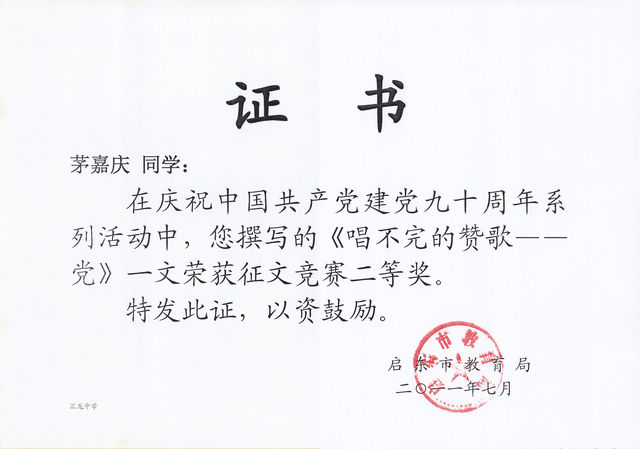 证 书
茅嘉庆 同学：
在庆祝中国共产党建党九十周年系
列活动中，您撰写的《唱不完的赞歌——
党》一文荣获征文竞赛二等奖。
特发此证，以资鼓励。
启东市教育局
启东市教育局
二〇一一年七月
汇龙中学